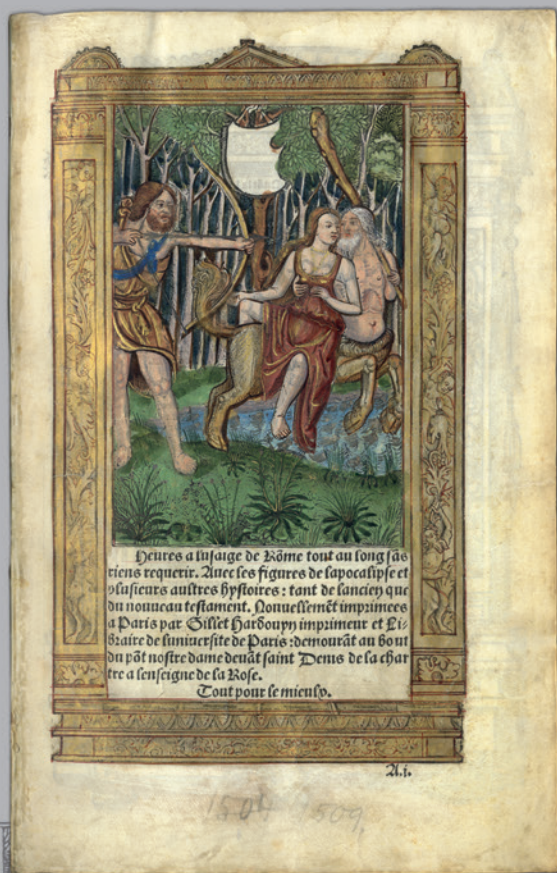 Heures a lusaige de Rõme tout au long sãs
riens requerir. Auec les figures de lapocalipse et
plusieurs aultres hystoires: tant de lancien que
du nouueau testament. Nouuellemẽt imprimees
a Paris par Gillet Hardouyn imprimeur et Li-
braire de luniuersite de Paris: demourãt au bout
du põt nostre dame deuãt saint Denis de la char
tre a lenseigne de la Rose.
Tout pour le mieulx.
A.i.
1509 1509